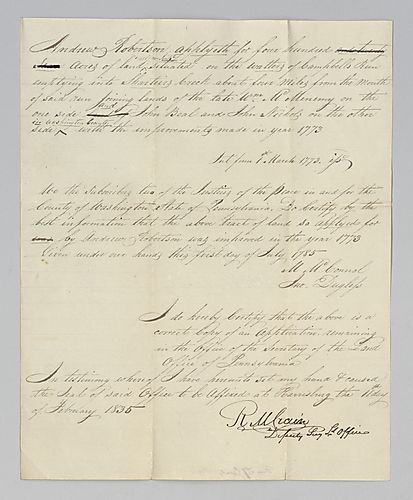 Andrew Robertson applyeth for four hundred
Acres of land Situated on the watters of Campbells Run
emptying into Shartiers Creek about five Miles from the mouth
of said run joining lands of the late Wm McMenemy on the
one side John Beal and John Nichols on the other
in Washington County
side with the improvements made in year 1773
Int. from 1st March 1773.
We the Subscribers two of the Justices of the Peace in and for the
County of Washington State of Pennsylvania Do Certify by the
best information that the above tract of land so applyed for
by Andrew Robertson was improved in the year 1773
Given under our hands this first day of July 1785
M McConnel
Jno. Duglass
I do hereby Certify that the above is a
correct Copy of an Application remaining
in the Office of the Secretary of the Land
Office of Pennsylvania
In testimony whereof I have hereunto set my hand & caused
the Seal of said Office to be affixed at Harrisburg the day
of February 1835
R M Crain
Deputy Secy L Office